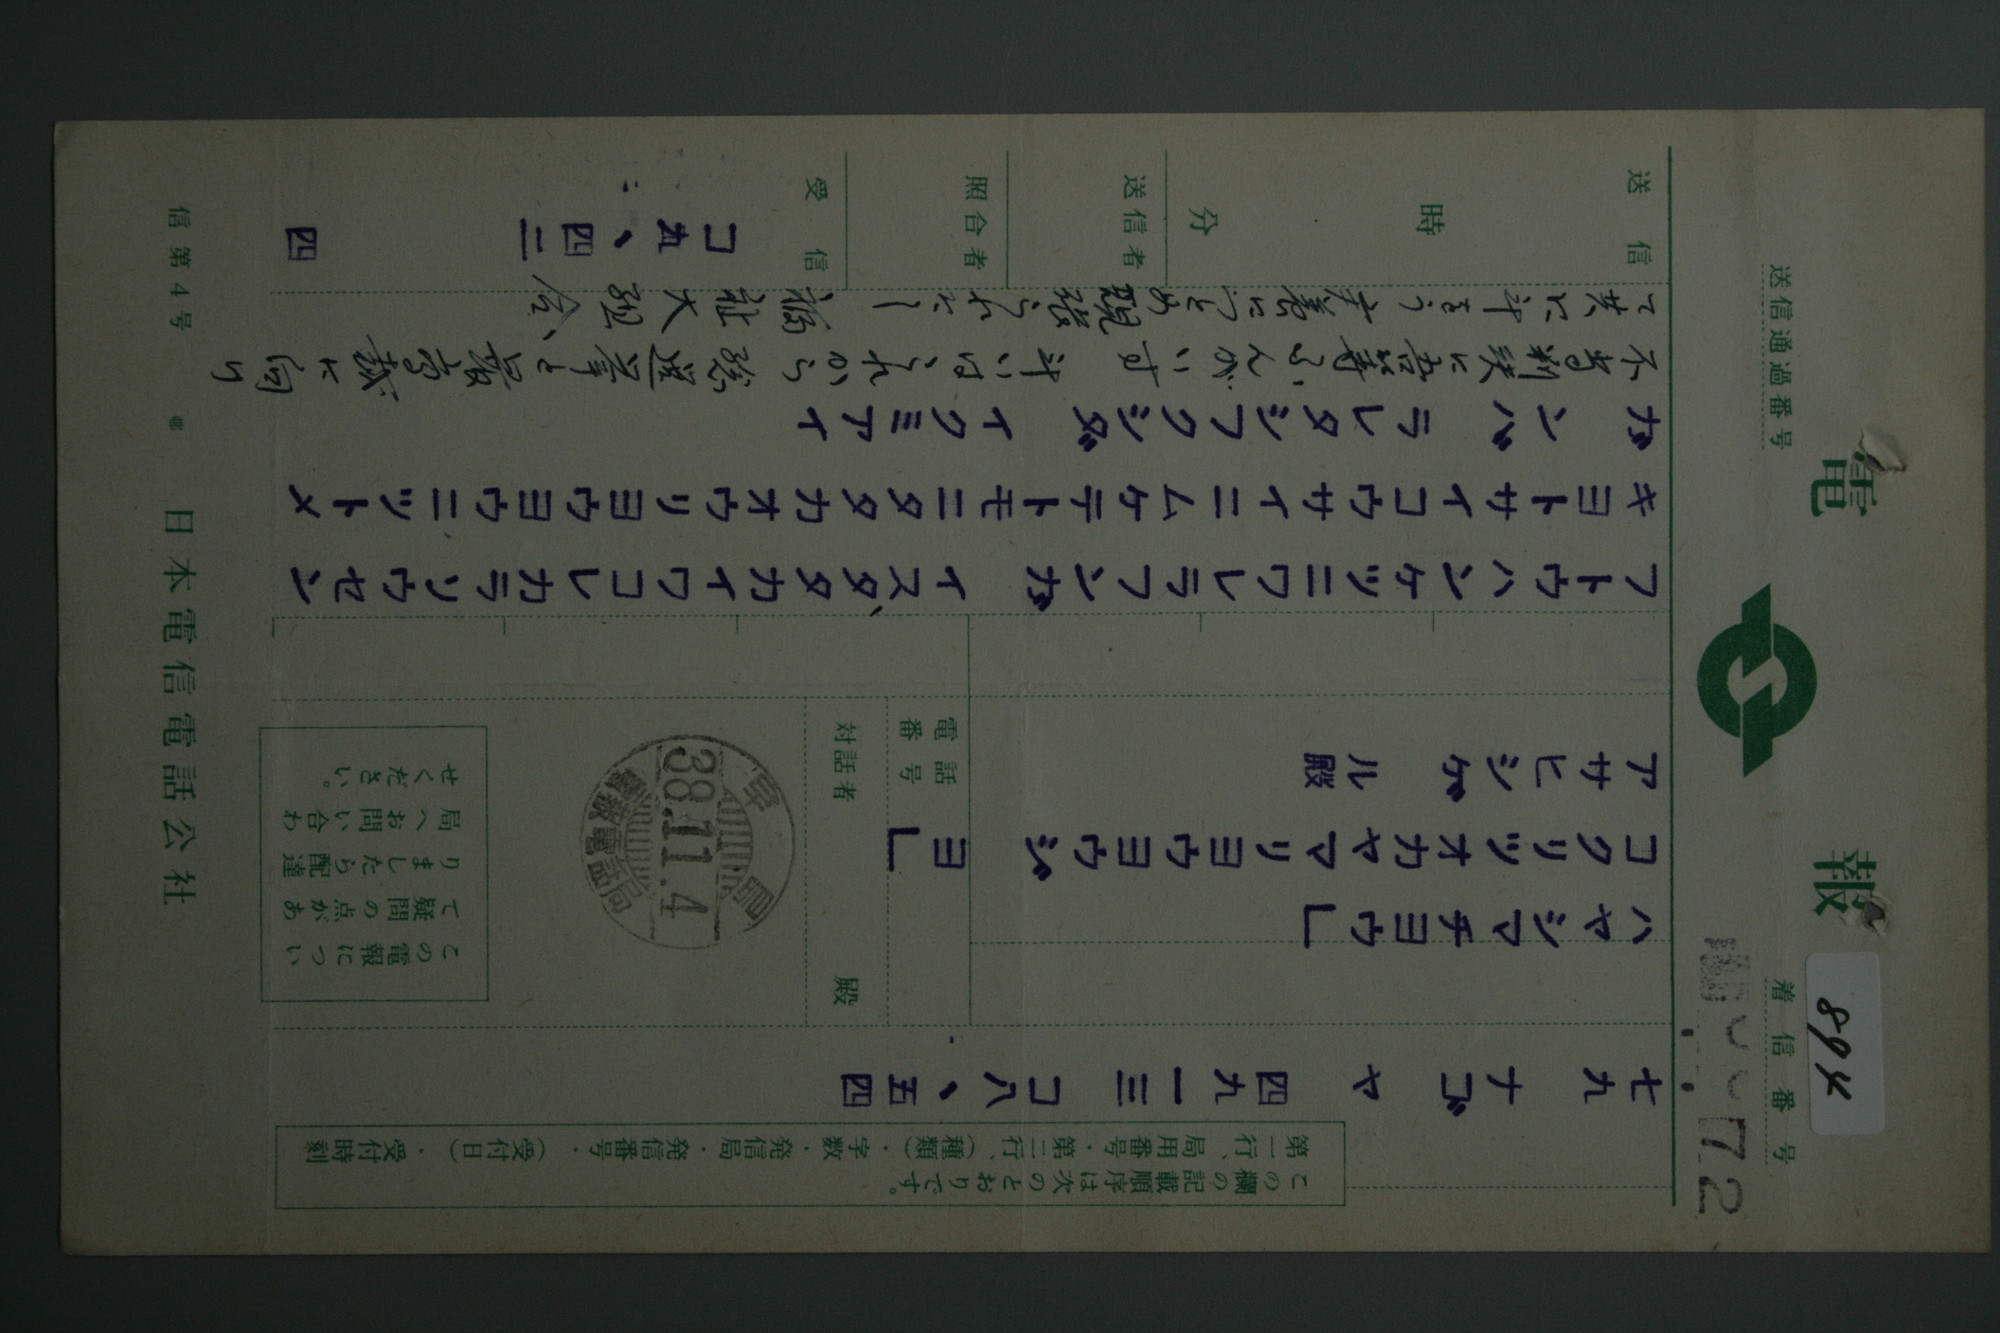 電報
送信通過番号
着信番号 72
894
この欄の記載順序は次のとおりです。
第一行、局用番号・第二行、(種類)・字数・発信局・発信番号・(受付日)・受付時刻
七九 ナゴヤ 四九一三 コ八、五四
ハヤシマチヨウ」
コクリツオカヤマリヨウヨウジヨ」
アサヒシゲル殿
電話番号
対話者 殿
早島
38.11.4
電報電話局
この電報につい
て疑問の点があ
りましたら配達
局へお問い合わ
せください。
フトウハンケツニワレラフンガイスタタカイワコレカラソウセン
キヨトサイコウサイニムケテトモニタタカオウリヨウヨウニツトメ
ガンバラレタシフクシダイクミアイ
不当判決に吾等ふんがいす 斗いはこれから総選挙と最高裁に向け
て共に斗おう 療養につとめ頑張られたし 福祉大組合
送信 時 分
送信者
照合者
受信 コ九、四二 四
信第4号 日本電信電話公社